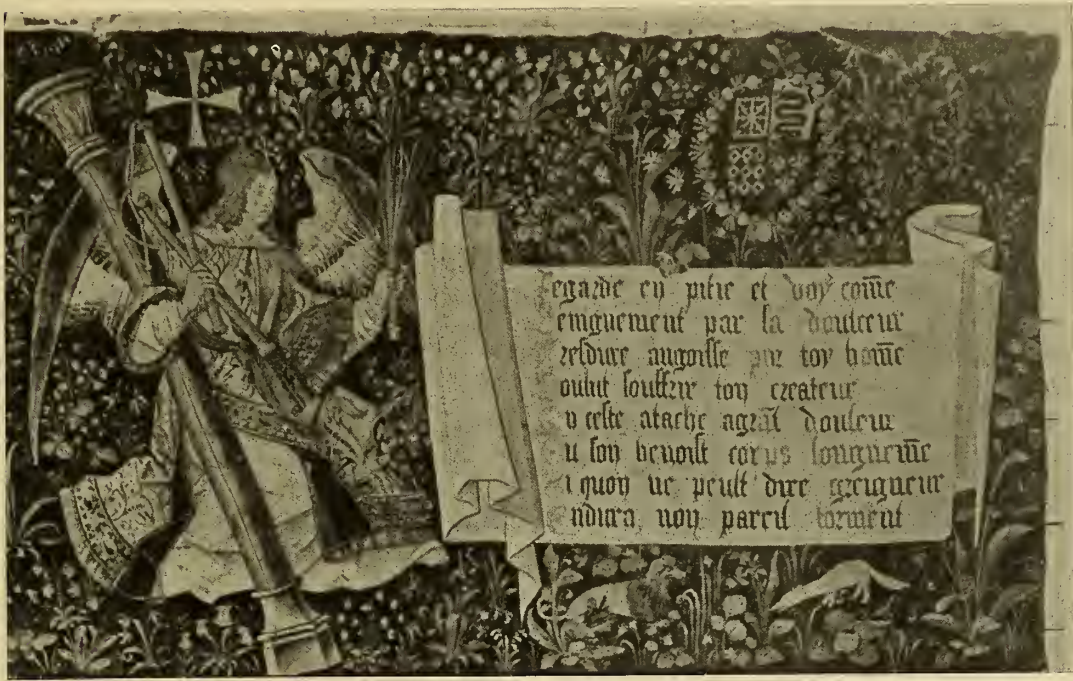 egarde en pitie et voy com̄e
emguement par la doulceur
resdure angoisse pur toy hom̄e
oulut souffrir ton createur
ceste atache agrāt douleur
u son benoist corps longuem̄e
i quon ne peult dire greigneur
ndura non pareil torment